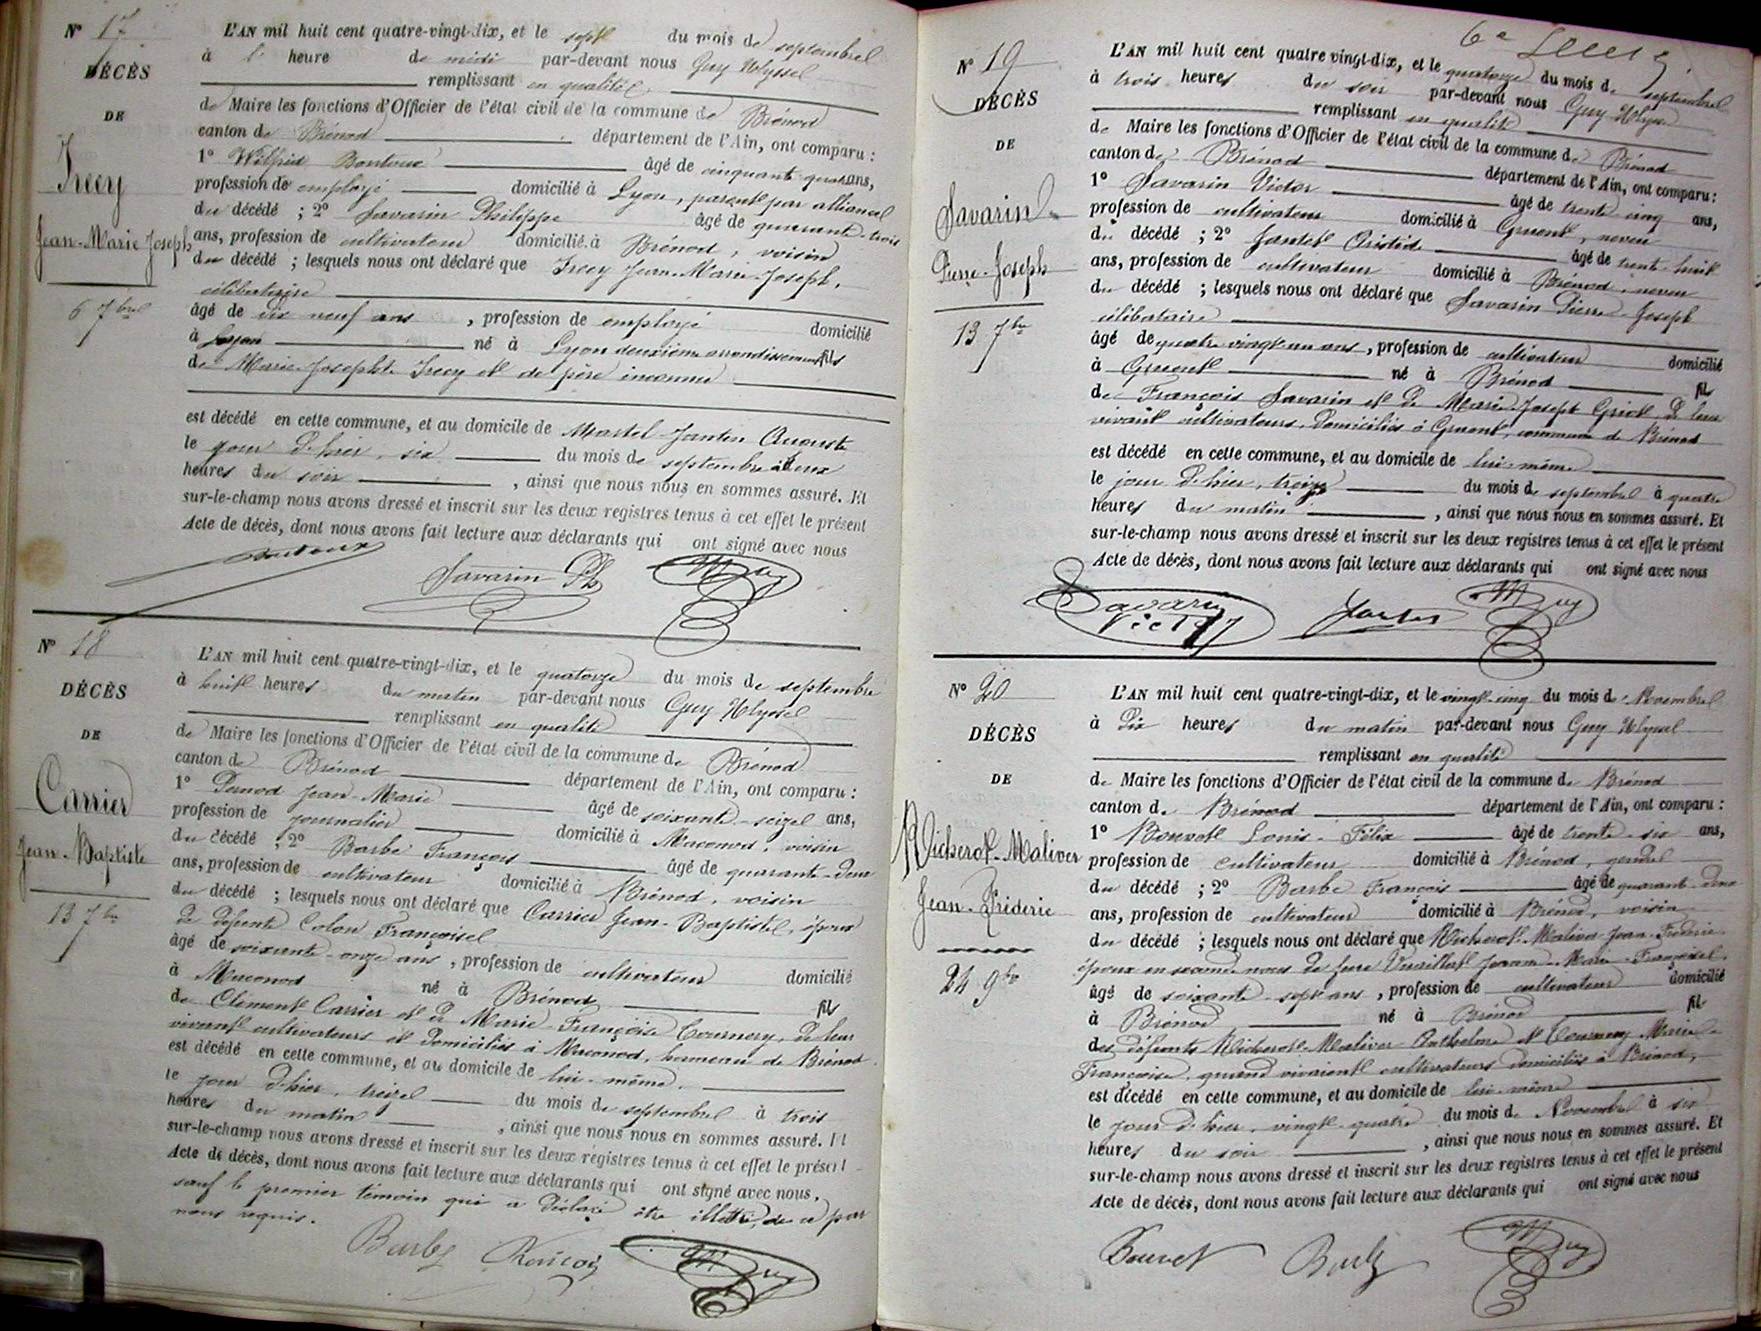 N° 17
DÉCÈS
DE
Trecy
Jean-Marie Joseph
6 7bre
L'AN mil huit cent quatre-vingt-dix, et le sept du mois de septembre
à 1 heure de midi par-devant nous Guy Ulysse
remplissant en qualité
de Maire les fonctions d'Officier de l'état civil de la commune de Brénod
canton de Brénod département de l'Ain, ont comparu :
1° Wilfrid Boutoux âgé de cinquante quatre ans,
profession de employé domicilié à Lyon, parent par alliance
du décédé ; 2° Savarin Philippe âgé de quarante-trois
ans, profession de cultivateur domicilié à Brénod, voisin
du décédé ; lesquels nous ont déclaré que Trecy Jean-Marie-Joseph,
célibataire
âgé de dix neuf ans, profession de employé domicilié
à Lyon né à Lyon deuxième arrondissement fils
de Marie-Josephte Trecy et de père inconnu
est décédé en cette commune, et au domicile de Martel-Janten Auguste
le jour d'hier, six du mois de septembre à deux
heures du soir, ainsi que nous nous en sommes assuré. Et
sur-le-champ nous avons dressé et inscrit sur les deux registres tenus à cet effet le présent
Acte de décès, dont nous avons fait lecture aux déclarants qui ont signé avec nous
Boutoux Savarin Ph Guy
N° 18
DÉCÈS
DE
Carrier
Jean-Baptiste
13 7bre
L'AN mil huit cent quatre-vingt-dix, et le quatorze du mois de septembre
à huit heures du matin par-devant nous Guy Ulysse
remplissant en qualité
de Maire les fonctions d'Officier de l'état civil de la commune de Brénod
canton de Brénod département de l'Ain, ont comparu :
1° Pernod Jean-Marie âgé de soixante-seize ans,
profession de journalier domicilié à Maconod, voisin
du décédé ; 2° Barbe François âgé de quarante-deux
ans, profession de cultivateur domicilié à Brénod, voisin
du décédé ; lesquels nous ont déclaré que Carrier Jean-Baptiste, époux
de défunte Colon Françoise
âgé de soixante-onze ans, profession de cultivateur domicilié
à Maconod né à Brénod fils
de Clément Carrier et de Marie-Françoise Tournery, de leur
vivant cultivateurs et domiciliés à Maconod, hameau de Brénod
est décédé en cette commune, et au domicile de lui-même.
le jour d'hier, treize du mois de septembre à trois
heures du matin, ainsi que nous nous en sommes assuré. Et
sur-le-champ nous avons dressé et inscrit sur les deux registres tenus à cet effet le présent
Acte de décès, dont nous avons fait lecture aux déclarants qui ont signé avec nous,
sauf le premier témoin qui a déclaré être illettré, de ce par
nous requis.
Barbe François Guy
6e
N° 19
DÉCÈS
DE
Savarin
Pierre-Joseph
13 7bre
L'AN mil huit cent quatre vingt-dix, et le quatorze du mois de septembre
à trois heures du soir par-devant nous Guy Ulysse
remplissant en qualité
de Maire les fonctions d'Officier de l'état civil de la commune de Brénod
canton de Brénod département de l'Ain, ont comparu :
1° Savarin Victor âgé de trente cinq ans,
profession de cultivateur domicilié à Gruent, neveu
du décédé ; 2° Jantet Aristid âgé de trente huit
ans, profession de cultivateur domicilié à Brénod, neveu
du décédé ; lesquels nous ont déclaré que Savarin Pierre-Joseph
célibataire
âgé de quatre vingt un ans, profession de cultivateur domicilié
à Gruent né à Brénod fils
de François Savarin et de Marie-Joseph Griot, de leur
vivant cultivateurs, domiciliés à Gruent, commune de Brénod
est décédé en cette commune, et au domicile de lui-même
le jour d'hier, treize du mois de septembre à quatre
heures du matin, ainsi que nous nous en sommes assuré. Et
sur-le-champ nous avons dressé et inscrit sur les deux registres tenus à cet effet le présent
Acte de décès, dont nous avons fait lecture aux déclarants qui ont signé avec nous
Savarin Victor Jantet Guy
N° 20
DÉCÈS
DE
Micherot-Maliver
Jean-Fréderic
24 9bre
L'AN mil huit cent quatre-vingt-dix, et le vingt-cinq du mois de Novembre
à Dix heures du matin par-devant nous Guy Ulysse
remplissant en qualité
de Maire les fonctions d'Officier de l'état civil de la commune de Brénod
canton de Brénod département de l'Ain, ont comparu :
1° Bouvet Louis-Félix âgé de trente-six ans,
profession de cultivateur domicilié à Brénod, gendre
du décédé ; 2° Barbe François âgé de quarante-deux
ans, profession de cultivateur domicilié à Brénod, voisin
du décédé ; lesquels nous ont déclaré que Micherot-Maliver Jean-Frédéric
époux en seconde noces de feue Vuaillat Jeanne-Marie-Françoise,
âgé de soixante-sept ans, profession de cultivateur domicilié
à Brénod né à Brénod fils
des défunts Micherot-Maliver Anthelme et Tournery Marie-
Françoise, quand vivaient cultivateurs domiciliés à Brénod,
est décédé en cette commune, et au domicile de lui-même
le jour d'hier, vingt-quatre du mois de Novembre à six
heures du soir, ainsi que nous nous en sommes assuré. Et
sur-le-champ nous avons dressé et inscrit sur les deux registres tenus à cet effet le présent
Acte de décès, dont nous avons fait lecture aux déclarants qui ont signé avec nous
Bouvet Barbe Guy